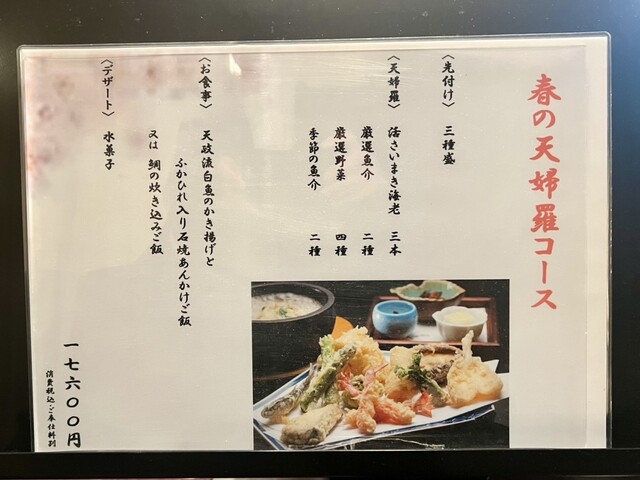 春の天婦羅コース
〈先付け〉 三種盛
〈天婦羅〉 活さいまき海老 三本
厳選魚介 二種
厳選野菜 四種
季節の魚介 二種
〈お食事〉 天政流白魚のかき揚げと
ふかひれ入り石焼あんかけご飯
又は 鯛の炊き込みご飯
〈デザート〉 水菓子
一七六〇〇円
消費税込・ご奉仕料別